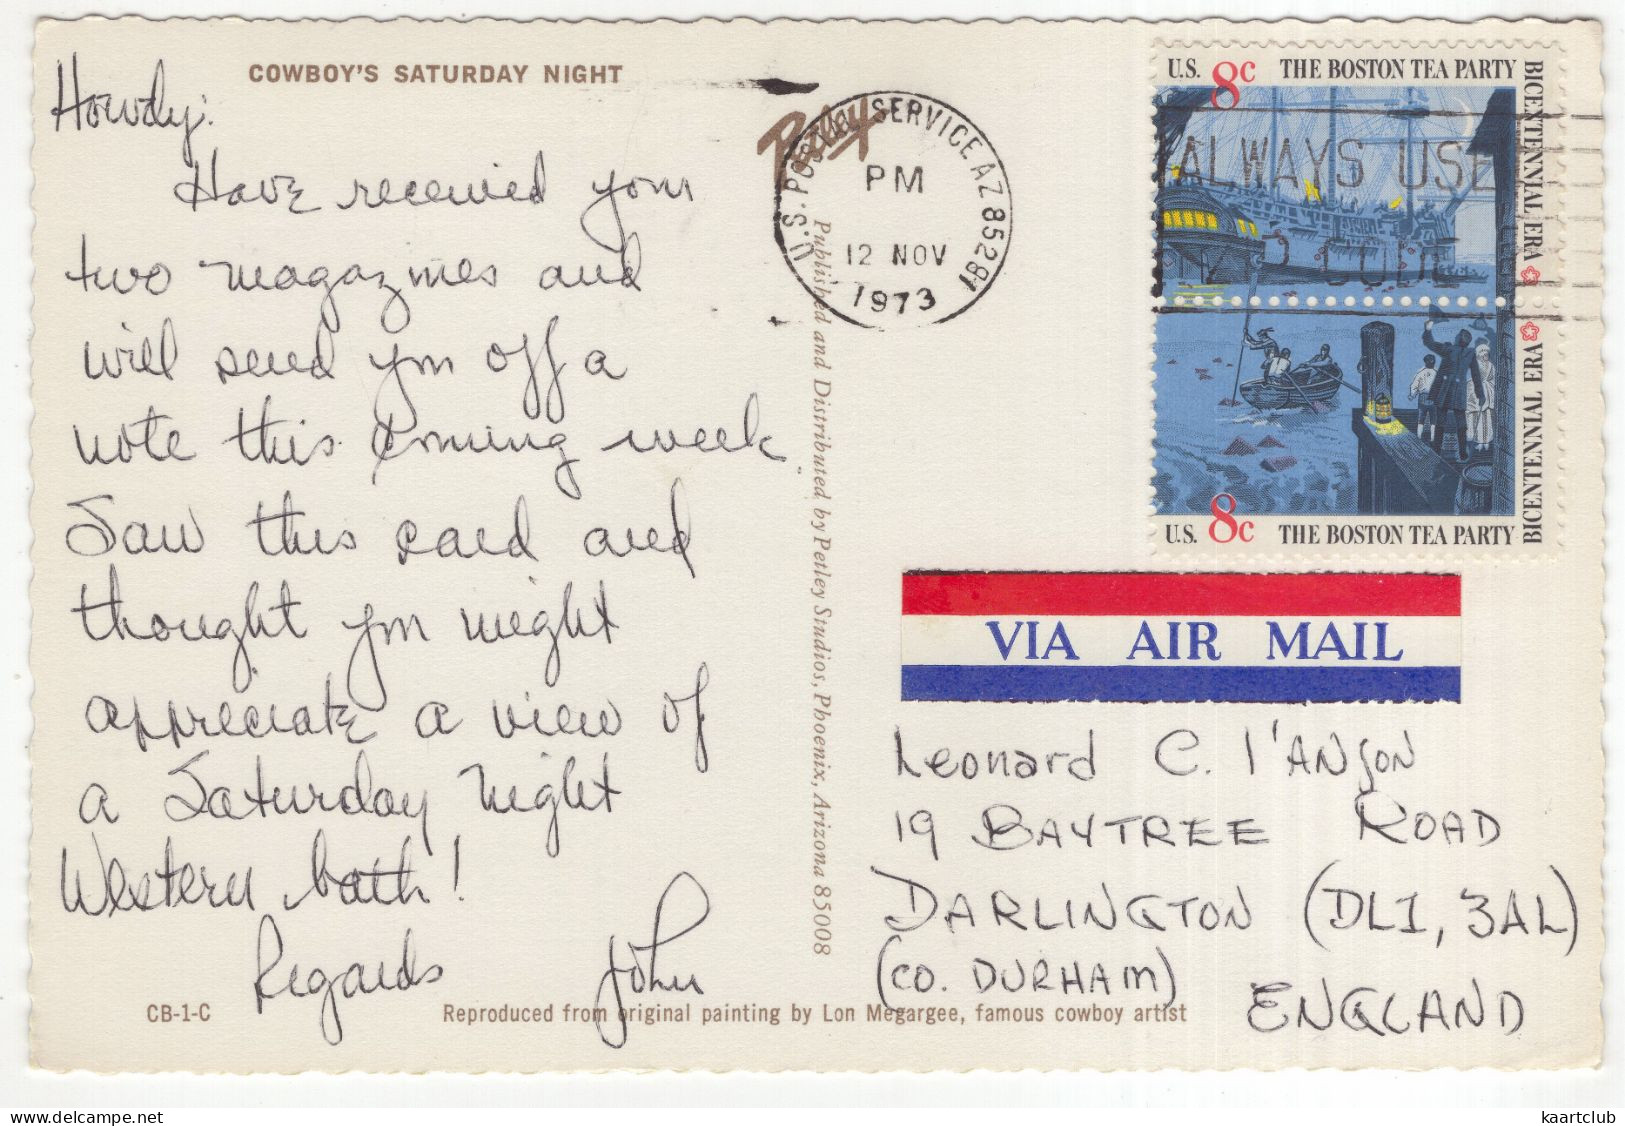 COWBOY'S SATURDAY NIGHT
Howdy:
Have received your
two magazines and
will send you off a
note this coming week
Saw this card and
thought you might
appreciate a view of
a Saturday night
Western bath!
Regards John
CB-1-C
Reproduced from original painting by Lon Megargee, famous cowboy artist
Petley
Published and Distributed by Petley Studios, Phoenix, Arizona 85008
U.S. POSTAL SERVICE AZ 85281
PM
12 NOV
1973
ALWAYS USE
ZIP CODE
U.S. 8c THE BOSTON TEA PARTY
BICENTENNIAL ERA
BICENTENNIAL ERA
U.S. 8c THE BOSTON TEA PARTY
VIA AIR MAIL
Leonard C. I'ANSON
19 BAYTREE ROAD
DARLINGTON (DL1, 3AL)
(CO. DURHAM)
ENGLAND
kaartclub